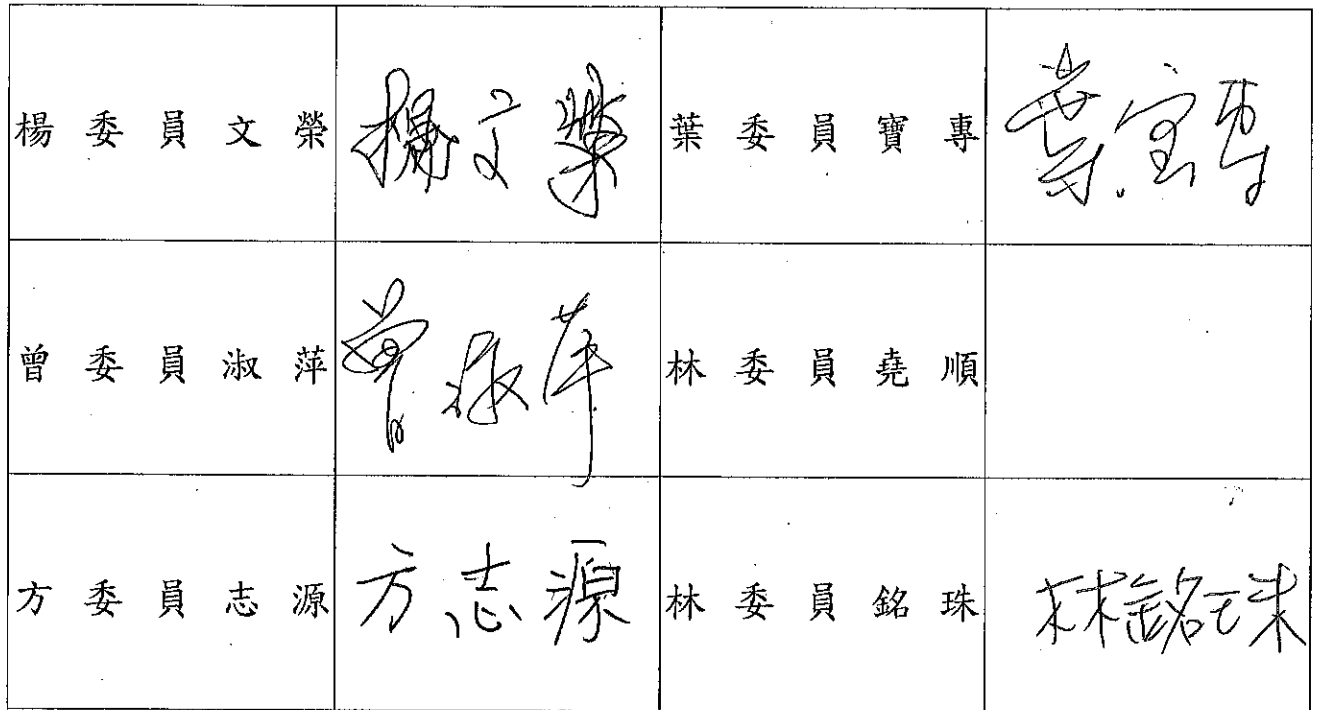 楊委員文榮 楊文榮 葉委員寶專 葉宝專
曾委員淑萍 曾淑萍 林委員堯順
方委員志源 方志源 林委員銘珠 林銘珠